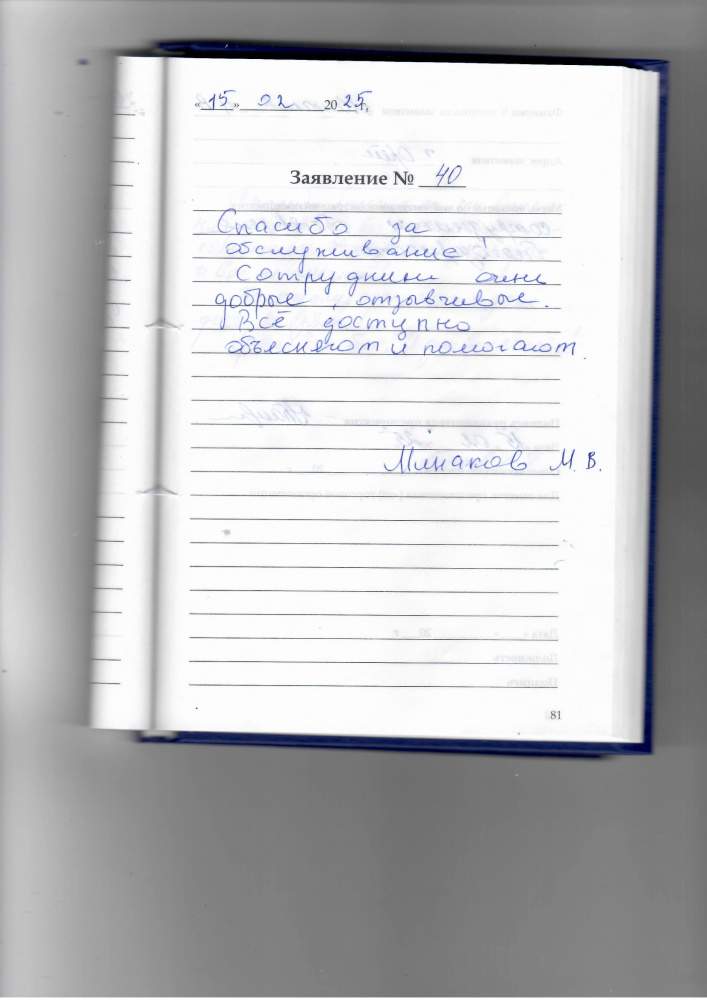 «15» 02 2025 г.
Заявление № 40
Спасибо за
обслуживание
Сотрудники очень
добрые, отзывчивые.
Всё доступно
объясняют и помогают.
М. В.
81